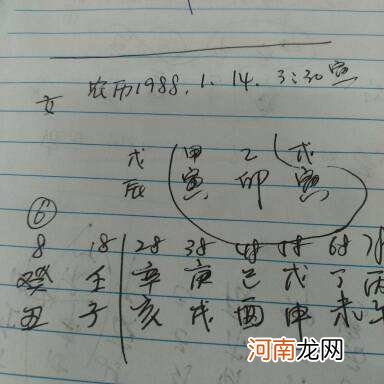 农历1988.1.14.3:30寅
女
戊 甲 乙 戊
辰 寅 卯 寅
⑥
8 18 28 38 48 58 68 78
癸 壬 辛 庚 己 戊 丁 丙
丑 子 亥 戌 酉 申 未 午
知常女性网